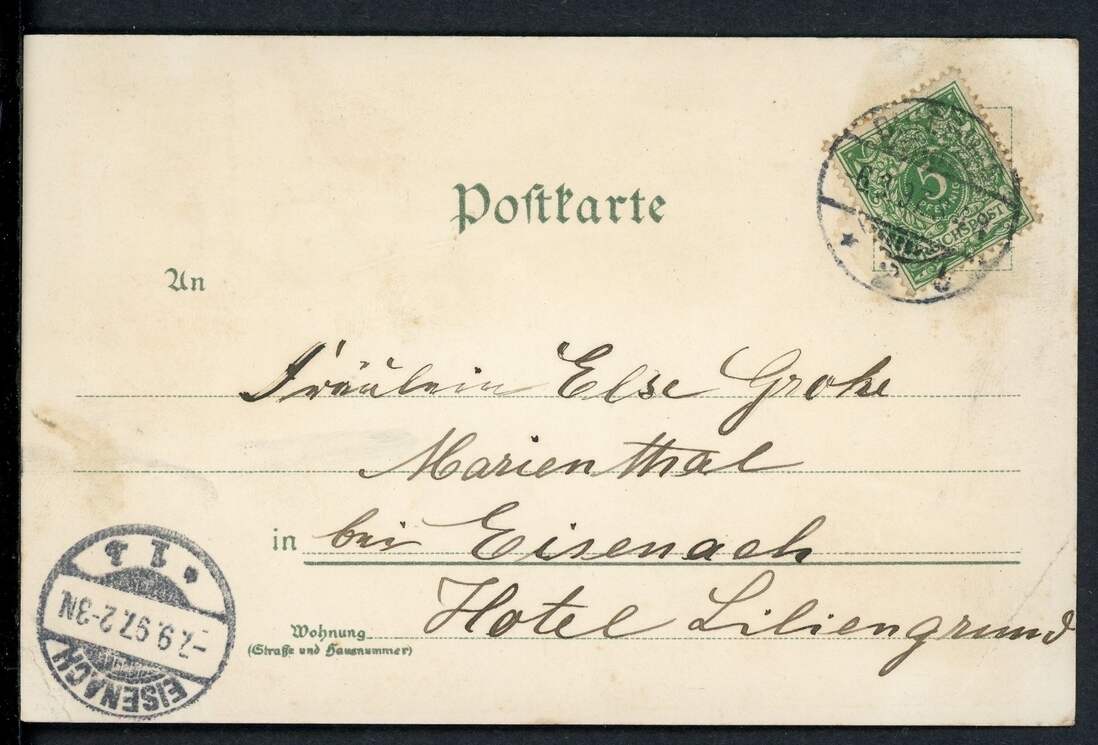 Postkarte
5
PFENNIG
REICHSPOST
An
Fräulein Else Groke
Marienthal
in bei Eisenach
Hotel Liliengrund
Wohnung
(Straße und Hausnummer)
EISENACH
-7.9.97. 2-3N.